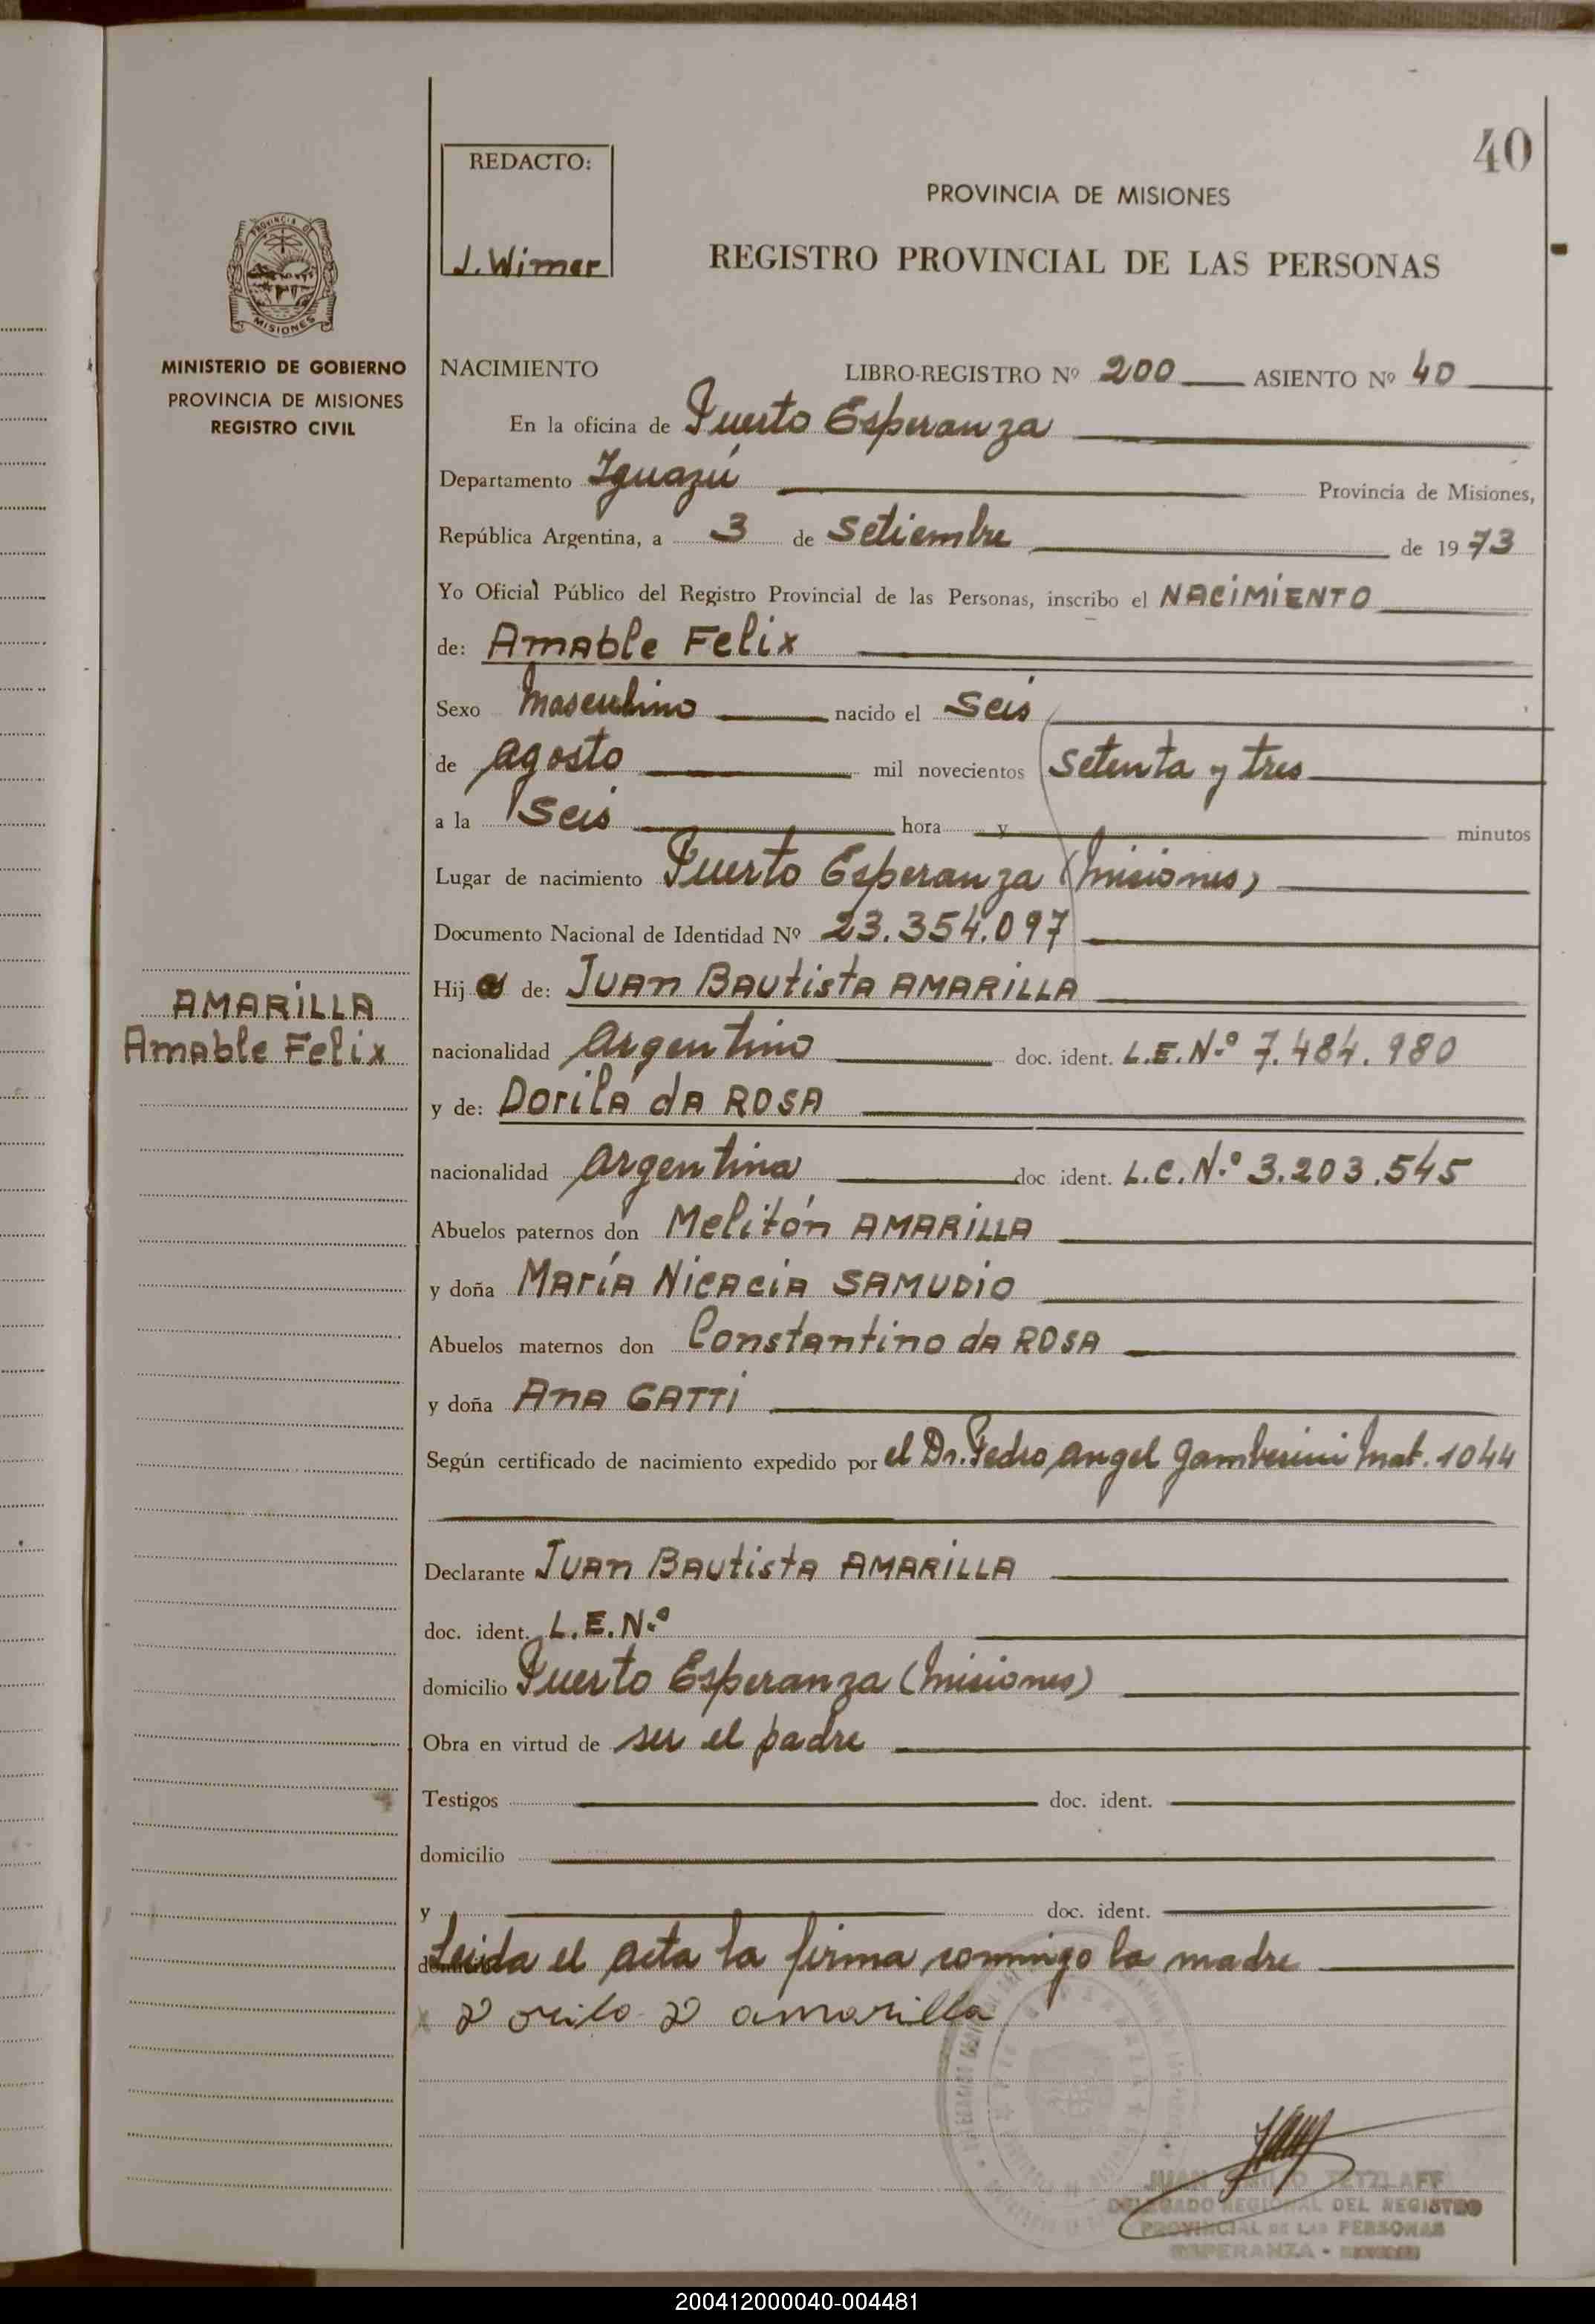 40
REDACTO:
J. Wimer
PROVINCIA DE MISIONES
REGISTRO PROVINCIAL DE LAS PERSONAS
PROVINCIA DE
MISIONES
MINISTERIO DE GOBIERNO
PROVINCIA DE MISIONES
REGISTRO CIVIL
NACIMIENTO LIBRO-REGISTRO Nº 200 ASIENTO Nº 40
En la oficina de Puerto Esperanza
Departamento Iguazú Provincia de Misiones,
República Argentina, a 3 de Setiembre de 1973
Yo Oficial Público del Registro Provincial de las Personas, inscribo el NACIMIENTO
de: Amable Felix
Sexo Masculino nacido el Seis
de agosto mil novecientos setenta y tres
a la Seis hora y minutos
Lugar de nacimiento Puerto Esperanza (Misiones)
Documento Nacional de Identidad Nº 23.354.097
Hijo de: Juan Bautista AMARILLA
AMARILLA
Amable Felix
nacionalidad argentino doc. ident. L.E.N.º 7.484.980
y de: Dorila da ROSA
nacionalidad argentina doc ident. L.C.N.º 3.203.545
Abuelos paternos don Melitón AMARILLA
y doña María Nicacia SAMUDIO
Abuelos maternos don Constantino da ROSA
y doña Ana GATTI
Según certificado de nacimiento expedido por el Dr. Pedro angel Gamberini Mat. 1044
Declarante Juan Bautista AMARILLA
doc. ident. L.E.N.º
domicilio Puerto Esperanza (Misiones)
Obra en virtud de ser el padre
Testigos doc. ident.
domicilio
y doc. ident.
Leida el acta la firma conmigo la madre
x D orila D amarilla
JUAN EMILIO TETZLAFF
DELEGADO REGIONAL DEL REGISTRO
PROVINCIAL DE LAS PERSONAS
ESPERANZA - MISIONES
200412000040-004481